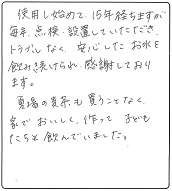 使用し始めて、15年経ちますが
毎年、点検・設置していただき、
トラブルなく、安心したお水を
飲み続けられ、感謝しており
ます。
夏場の麦茶も買うことなく、
家でおいしく作って子ども
たちと飲んでいました。